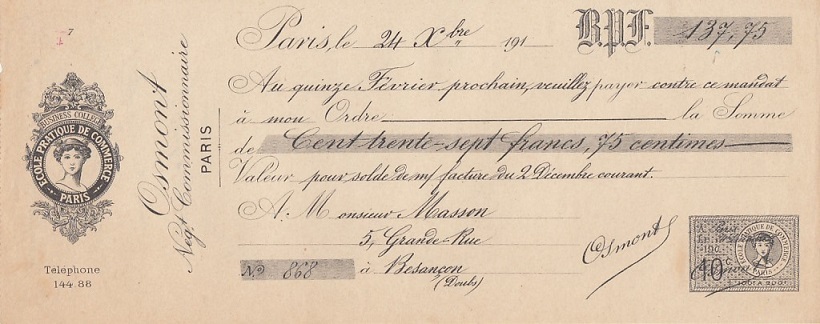 7
Paris, le 24 Xbre 191
B.P.F. 137,75
Au quinze Février prochain, veuillez payer contre ce mandat
à mon Ordre la Somme
de Cent trente-sept francs, 75 centimes
Valeur pour solde de m/ facture du 2 Décembre courant.
A Monsieur Masson
5, Grande-Rue
à Besançon
(Doubs)
No. 868
Osmont
Osmont
Negt. Commissionnaire
PARIS
BUSINESS COLLEGE
ECOLE PRATIQUE DE COMMERCE
PARIS
Telephone
144.88
A Paris
190
ECOLE PRATIQUE DE COMMERCE
PARIS
10c
Osmont
100f A 200f